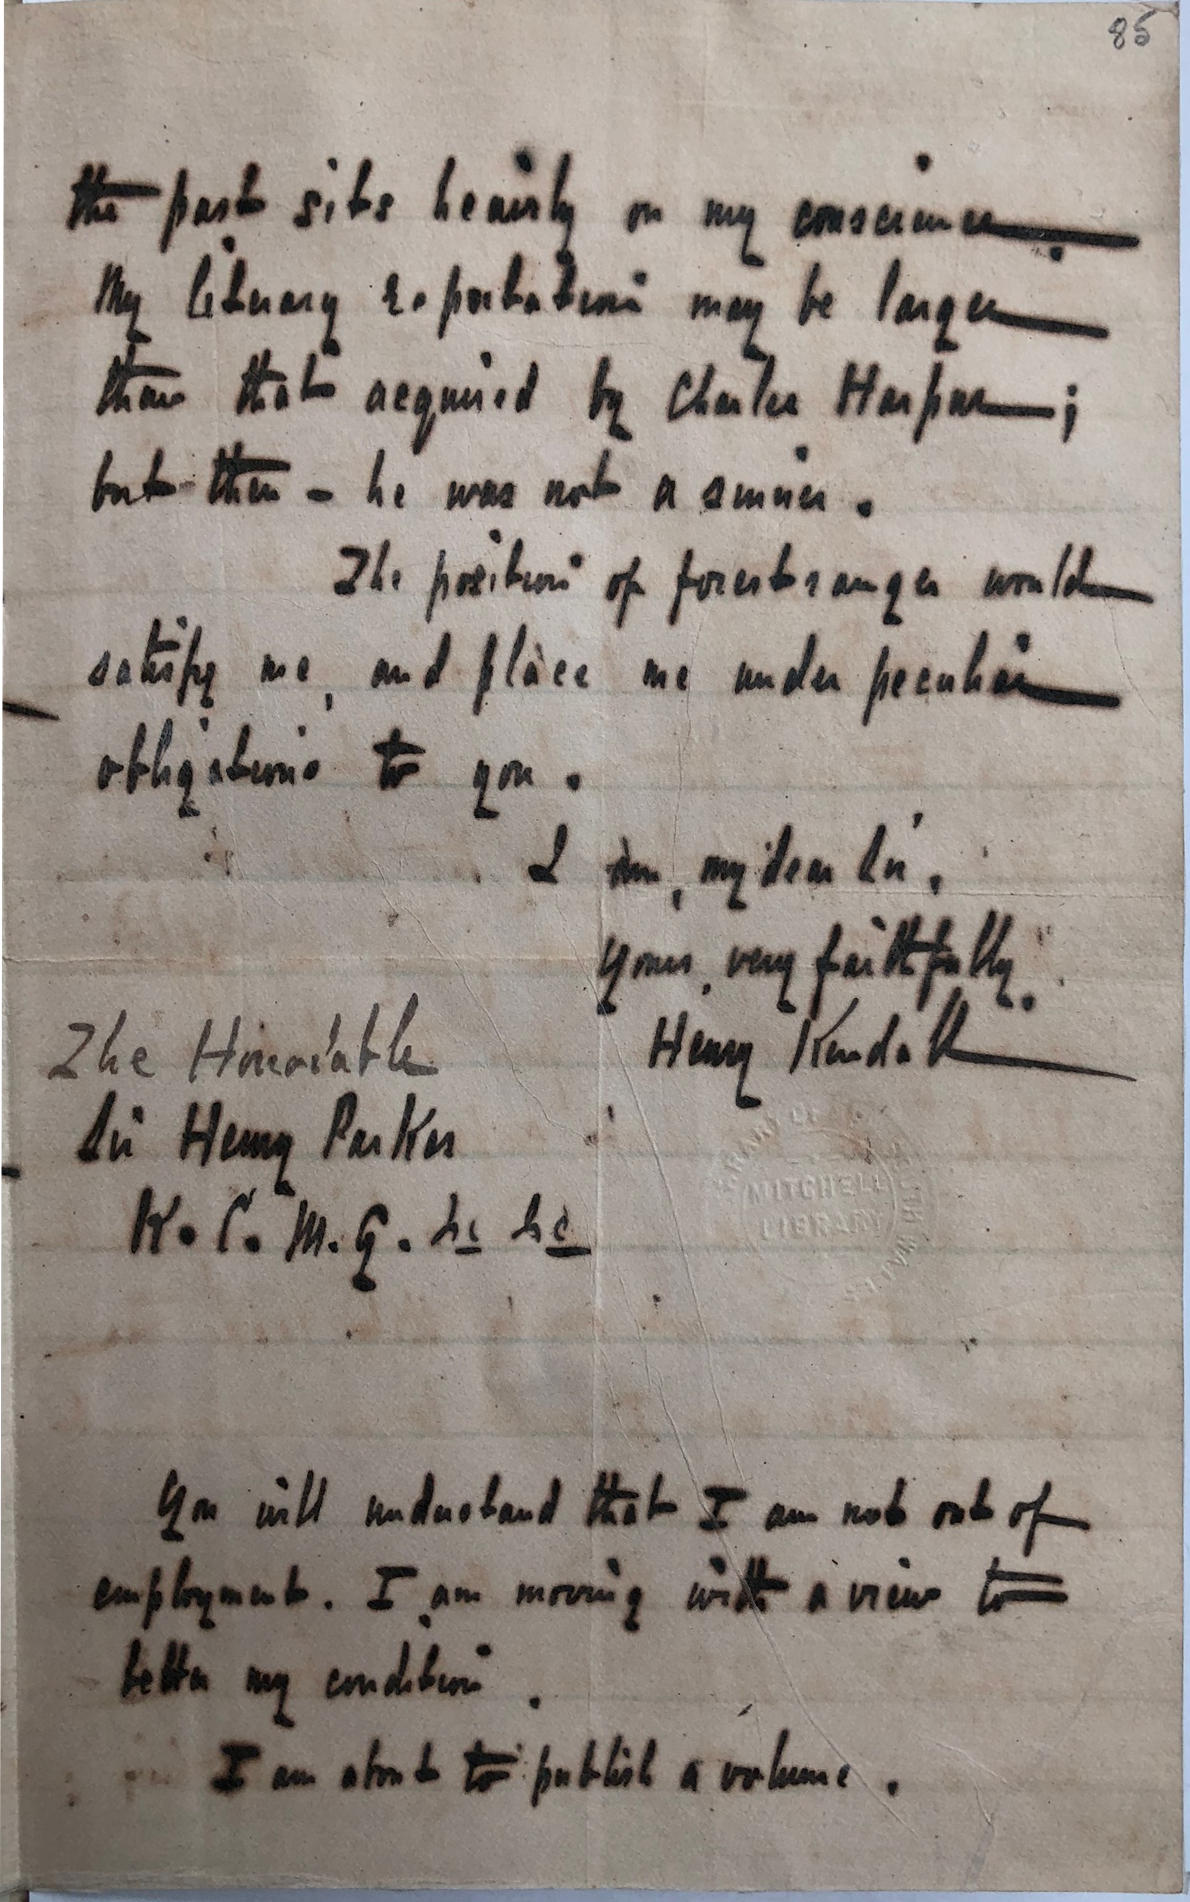 85
the past sits heavily on my conscience.
My literary reputation may be larger
than that acquired by Charles Harpur;
but then - he was not a sinner.
The position of forest ranger would
satisfy me, and place me under peculiar
obligations to you.
I am, my dear Sir,
Yours, very faithfully.
Henry Kendall
The Honorable
Sir Henry Parkes
K.C.M.G. &c &c
MITCHELL
LIBRARY
You will understand that I am not out of
employment. I am moving with a view to
better my condition.
I am about to publish a volume.